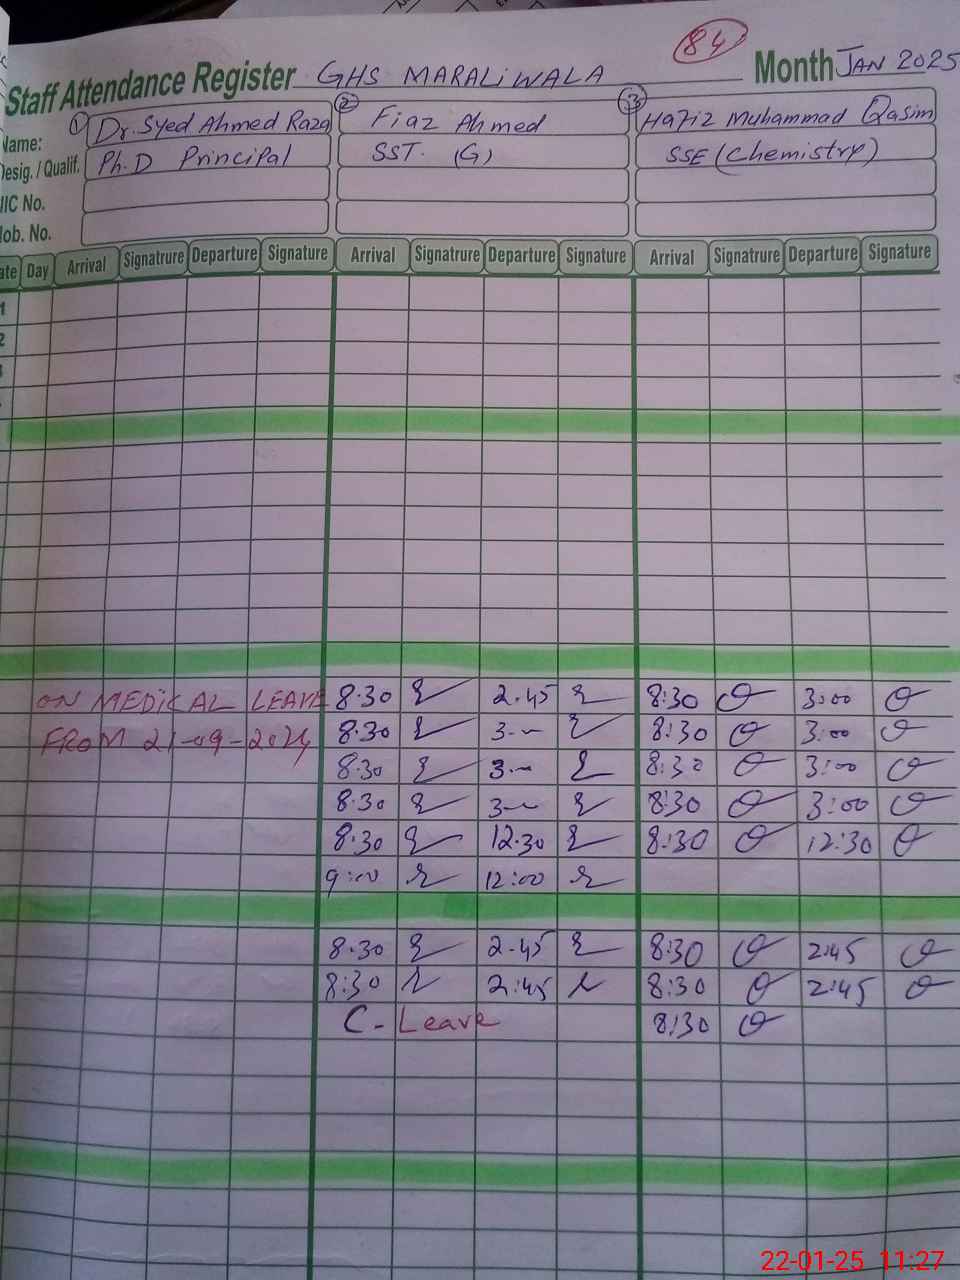 84
Staff Attendance Register GHS MARALIWALA Month JAN 2025
1 2 3
Name: Dr. Syed Ahmed Raza Fiaz Ahmed Hafiz Muhammad Qasim
Desig. / Qualif. Ph.D Principal SST. (G) SSE (Chemistry)
NIC No.
Job. No.
ate Day Arrival Signatrure Departure Signature Arrival Signatrure Departure Signature Arrival Signatrure Departure Signature
1
2
ON MEDICAL LEAVE 8.30 2.45 8:30 3:00
FROM 21-09-2024 8.30 3-- 8:30 3:00
8:30 3-- 8:30 3:00
8.30 3-- 8:30 3:00
8:30 12.30 8:30 12:30
9:00 12:00
8.30 2.45 8:30 2:45
8:30 2:45 8:30 2:45
C- Leave 8:30
22-01-25 11:27